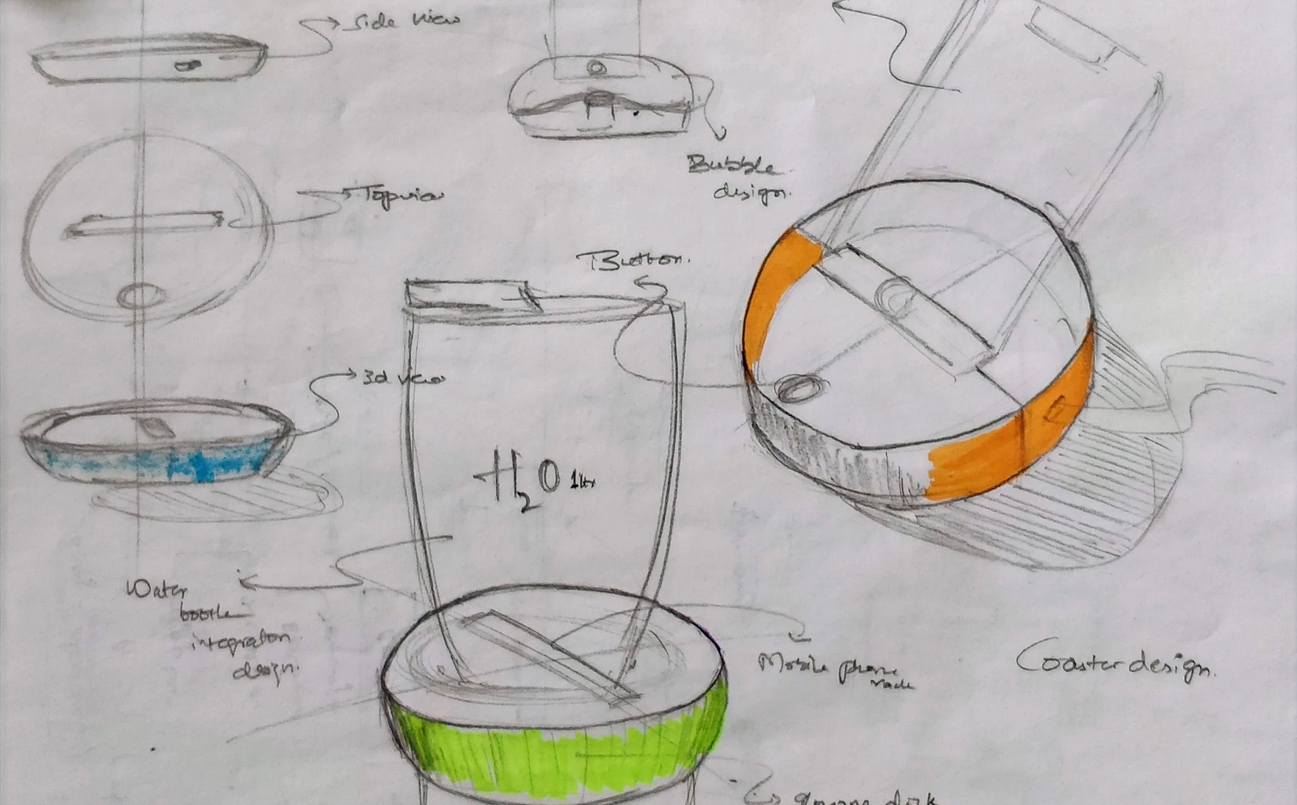 Side view
Bubble
design.
Topview
Button.
3d view
H2O 1ltr
Water
bottle
integration
design.
Mobile phone
Coaster design.